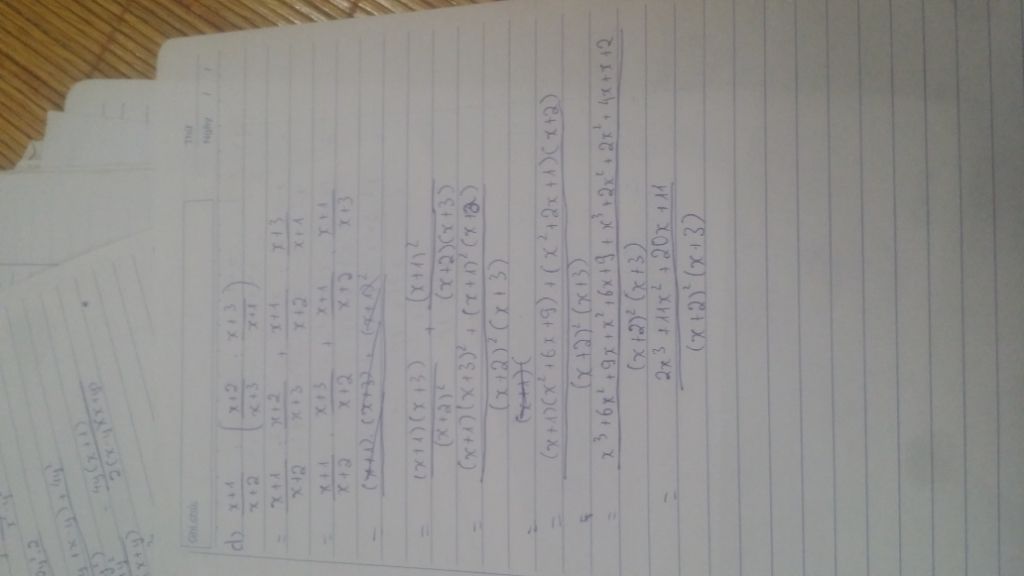 Thứ
Ngày / /
d) \frac{x+1}{x+2} : \left(\frac{x+2}{x+3} : \frac{x+3}{x+1}\right)
= \frac{x+1}{x+2} : \frac{x+2}{x+3} + \frac{x+1}{x+2} : \frac{x+3}{x+1}
= \frac{x+1}{x+2} . \frac{x+3}{x+2} + \frac{x+1}{x+2} . \frac{x+1}{x+3}
= \frac{(x+1)(x+3)}{(x+2)^2} + \frac{(x+1)^2}{(x+2)(x+3)}
= \frac{(x+1)(x+3)^2 + (x+1)^2(x+2)}{(x+2)^2(x+3)}
= \frac{(x+1)(x^2+6x+9) + (x^2+2x+1)(x+2)}{(x+2)^2(x+3)}
= \frac{x^3+6x^2+9x+x^2+6x+9+x^3+2x^2+2x^2+4x+x+2}{(x+2)^2(x+3)}
= \frac{2x^3+11x^2+20x+11}{(x+2)^2(x+3)}